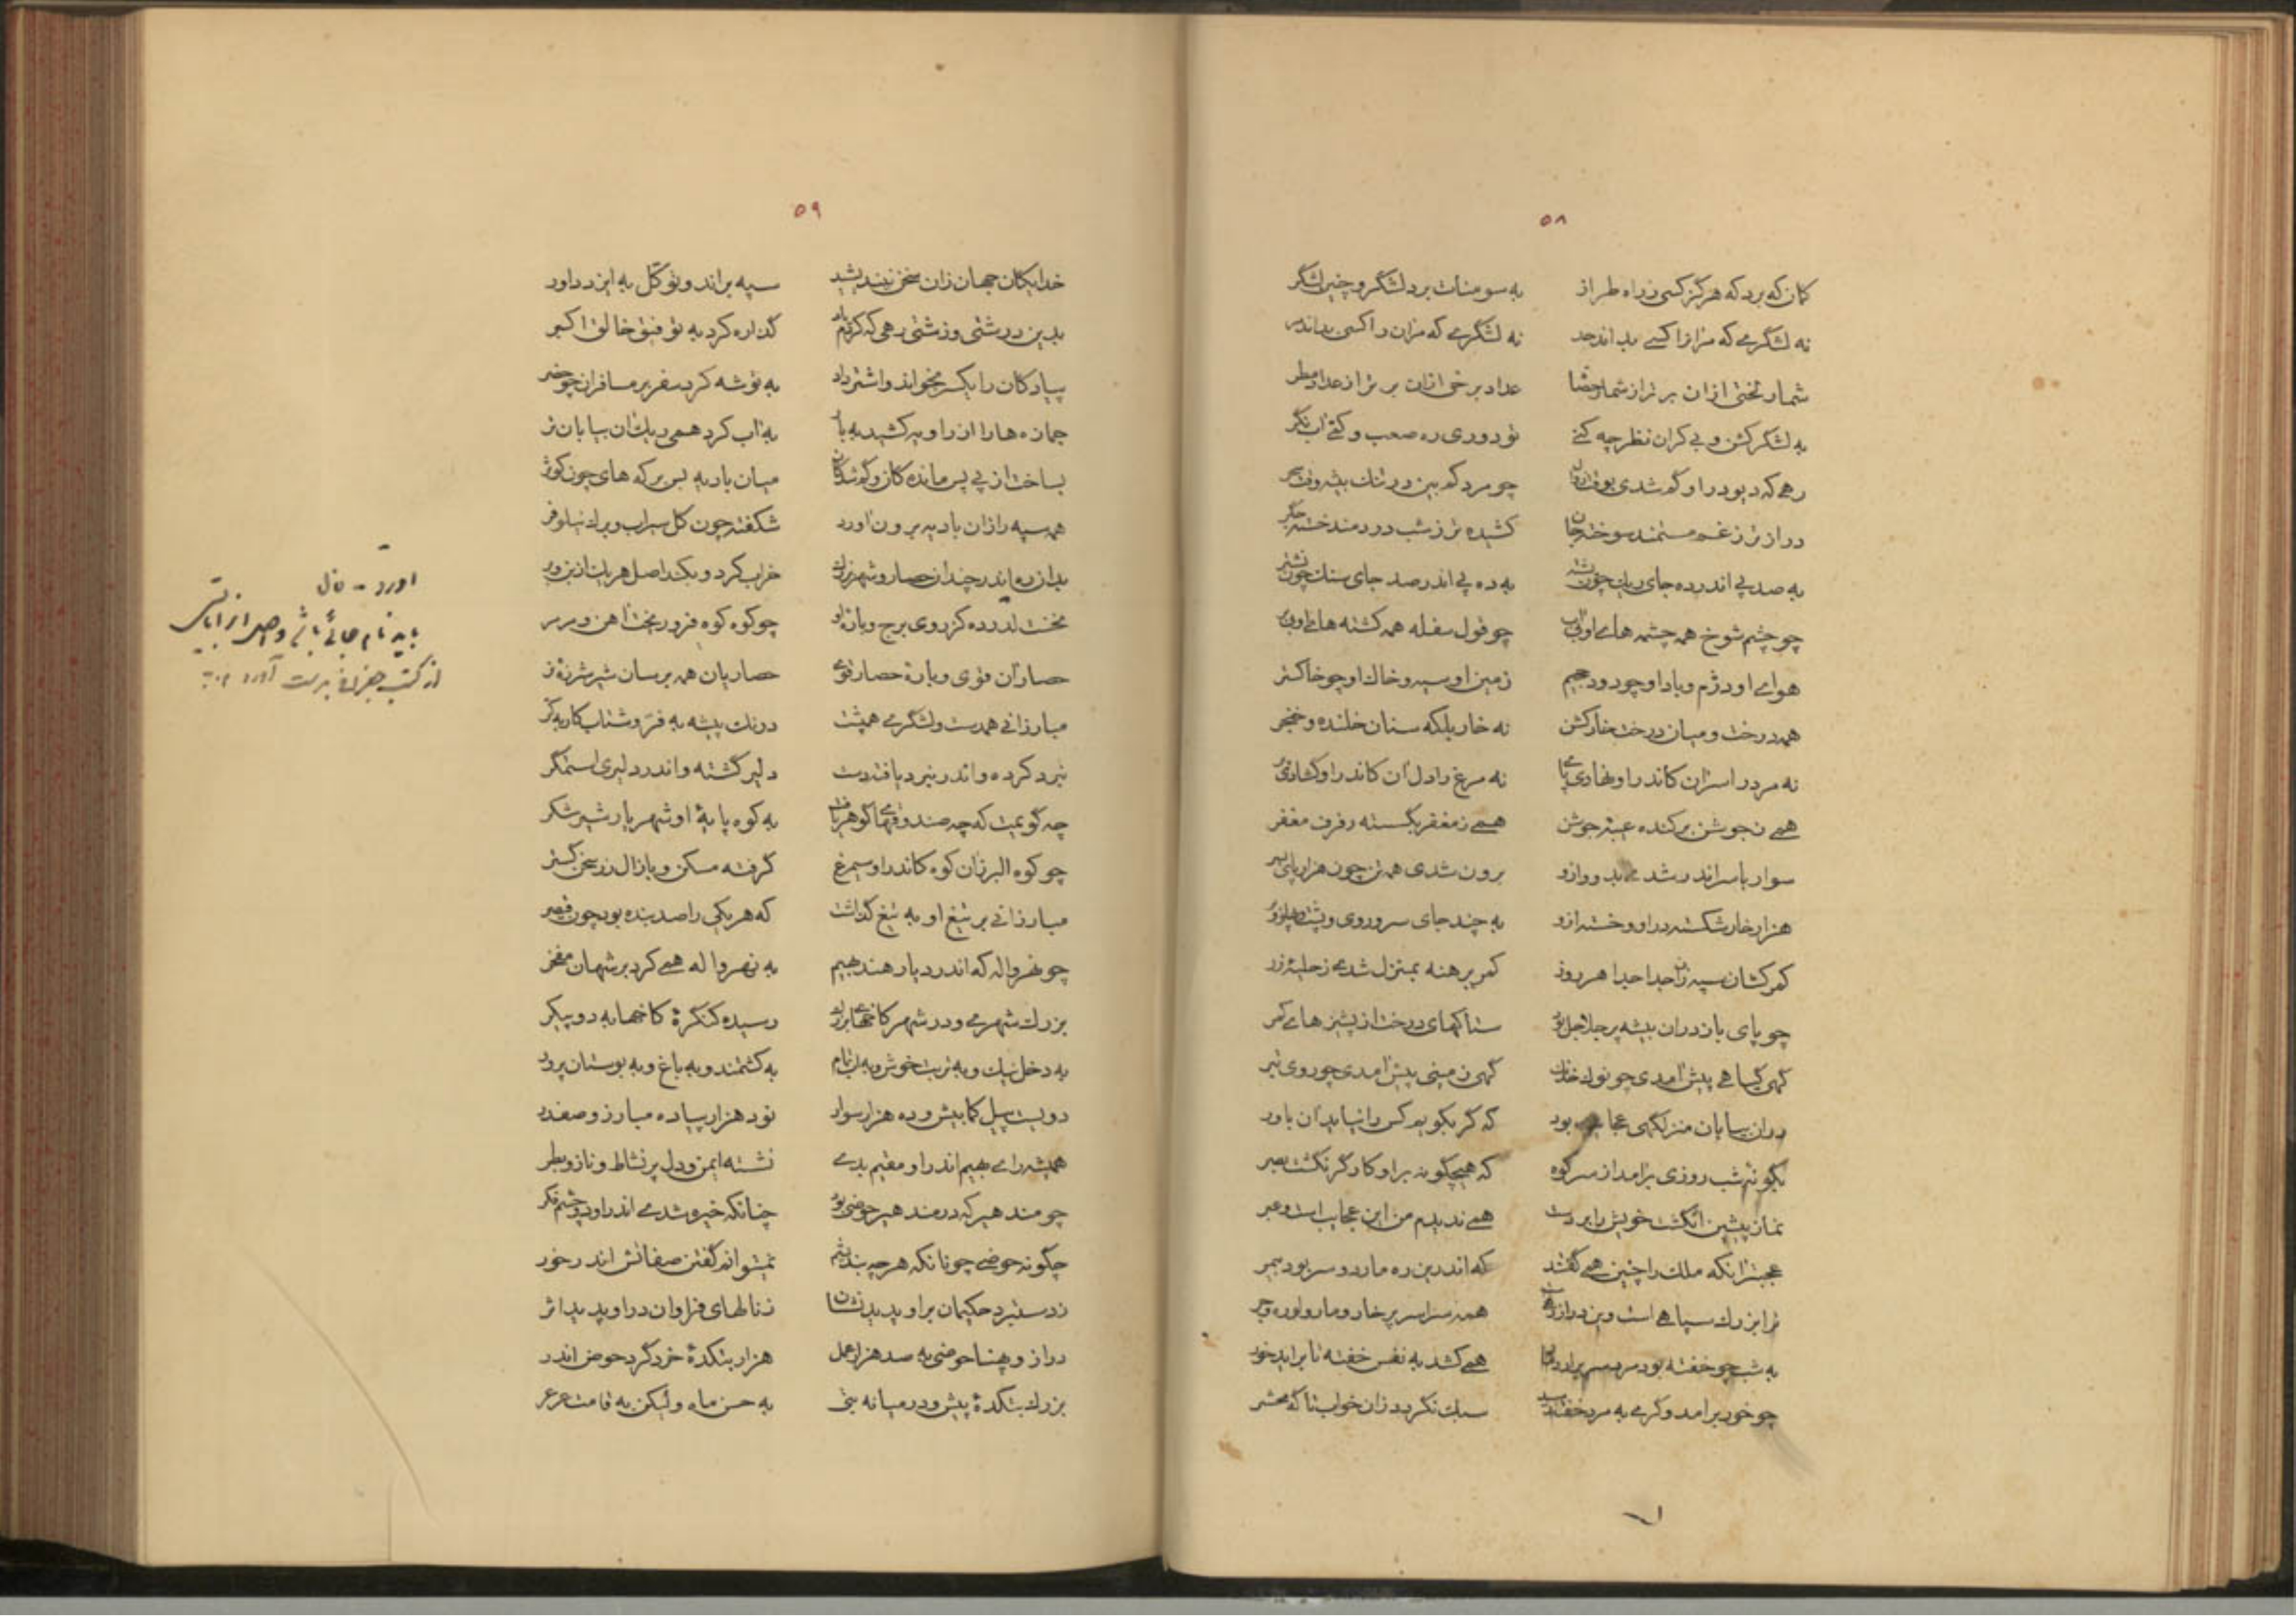 ۵۸
کمان که برد که هرگز کسی ز راه طراز به سومنات برد لشگر و چنین لشگر
نه لشگری که مر انرا کسی بداند حد نه لشگری که مران را کسی بداند مر
شمار لختی ازان برتر از شمار حصا عداد برخی ازان برتر از عداد مطر
به لشگر کشن و بی کران نظر چه کنی تو دوری ره صعب و کمی اب نگر
رهی که دیو در او گم شدی بوقت زوال چو مرد کم بین در تنک بیشه وقت سحر
دراز تر ز غم مستمند سوخته جان کشیده تر ز شب دردمند خسته جگر
به صد پی اندر ده جای ریک چون سرمه به ده پی اندر صد جای سنک چون نشتر
چو چشم شوخ همه چشمه های او بی اب چو قول سفله همه کشته های او بی بر
هوای او دژم و باد او چو دود جحیم زمین او سیه و خاک او چو خاکستر
همه درخت و میان درخت خار کشن نه خار بلکه سنان خلنده و خنجر
نه مرد را سر ان کاندر او نهادی پای نه مرغ را دل ان کاندر او گشادی پر
همی ز جوشن برکنده غیبه جوشن همی ز مغفر بگسسته رفرف مغفر
سوار با سر اندر شدی بدو و ازو برون شدی همه تن چون هزار پای بسر
هزار خار شکسته در او و خسته ازو به چند جای سر و روی و پشت و پهلو و بر
کمر کشان سپه را جدا جدا هر روز کمر برهنه بمنزل شدی ز حلیه زر
چو پای باز دران بیشه پر جلاجل بود ستاکهای درخت از پشیزهای کمر
گهی گیاهی پیش امدی چو نوک خدنک گهی زمینی پیش امدی چو روی تبر
دران بیابان منزلگهی عجایب بود که گر بگویم کس را نیاید ان باور
بگونه شب روزی برامد از سر کوه که هیچگونه بر او کارگر نگشت بصر
نماز پیشین انگشت خویش را بر دست همی ندیدم من این عجایب است و عبر
عجبتر انکه ملک را چنین همی گفتند که اندرین ره مار دو سر بود بیمر
ترا بزرک سپاهی است وین دراز رهی همه سراسر پر خار و مار و لوره و جر
به شب چو خفته بود مرد سر برارد مار همی کشد به نفس خفته تا براید خور
چو خور برامد و گرمی به مرد خفته رسید سبک نگردد زان خواب تا گه محشر
۵۹
خدایگان جهان زان سخن نیندیشید سپه براند و توکل به ایزد داور
بدین درشتی و زشتی رهی که کردم یاد گذاره کرد به توفیق خالق اکبر
پیادگان را یکسر بخواند و اشتر داد به توشه کرد سفر بر مسافران چو حضر
جمازه ها را اندر او به کشید به بار به اب کرد همی ریک ان بیابان تر
بساخت از پی پس ماندگان و گمشدگان میان بادیه بس برکه های چون کوثر
همه سپه را زان بادیه برون اورد شکفته چون گل سیراب و برک نیلوفر
بدان ره اندر چندان حصار و شهر بزرک خراب کرد و بکند اصل هر یک از بن و بر
نخست لدرده کز روی برج و باره او چو کوه کوه فرو ریخت اهن و مرمر
حصار ان قوی و باره حصار قوی حصاریان همه بر سان شیر شرزه نر
مبارزانی همدست و لشگری همپشت درنک پیشه به فر و شتاب کار به کر
نبرد کرده و اندر نبرد یافته دست دلیر گشته و اندر دلیری استمگر
چه گویمت که چه صندوقهای گوهر یافت به کوه پایه او شهریار شیر شکر
چو کوه البرز ان کوه کاندر او سیمرغ گرفته مسکن و با زال زر سخن گستر
مبارزانی بر تیغ او به تیغ گذاشت که هر یکی را صد بنده بود چون قیصر
چو نهرواله که اندر دیار هند بهیم به نهرواله همی کرد بر شهان مفخر
بزرک شهری و در شهر کاخهای بزرک رسیده کنگره کاخها به دو پیکر
به دخل نیک و به تربت خوش و به اب تمام به کشتمند و به باغ و به بوستان پرور
دویست پیل کما بیش و ده هزار سوار نود هزار پیاده مبارز و صفدر
همیشه رای بهیم اندر او مقیم بدی نشسته ایمن و دل پر نشاط و ناز و بطر
چو مندهیر که در مندهیر حوضی بود چنانکه خیره شدی اندر او دو چشم فکر
چگونه حوضی چونانکه هر چه بندیشم نمیتوانم گفتن صفاتش اندر خور
ز دستبرد حکیمان بر او پدید نشان ز مالهای فراوان در او پدید اثر
دراز و پهنا حوضی به صد هزار عمل هزار بتکده خرد گرد حوض اندر
بزرک بتکده پیش و در میانه بتی به حسن ماه ولیکن به قامت عرعر